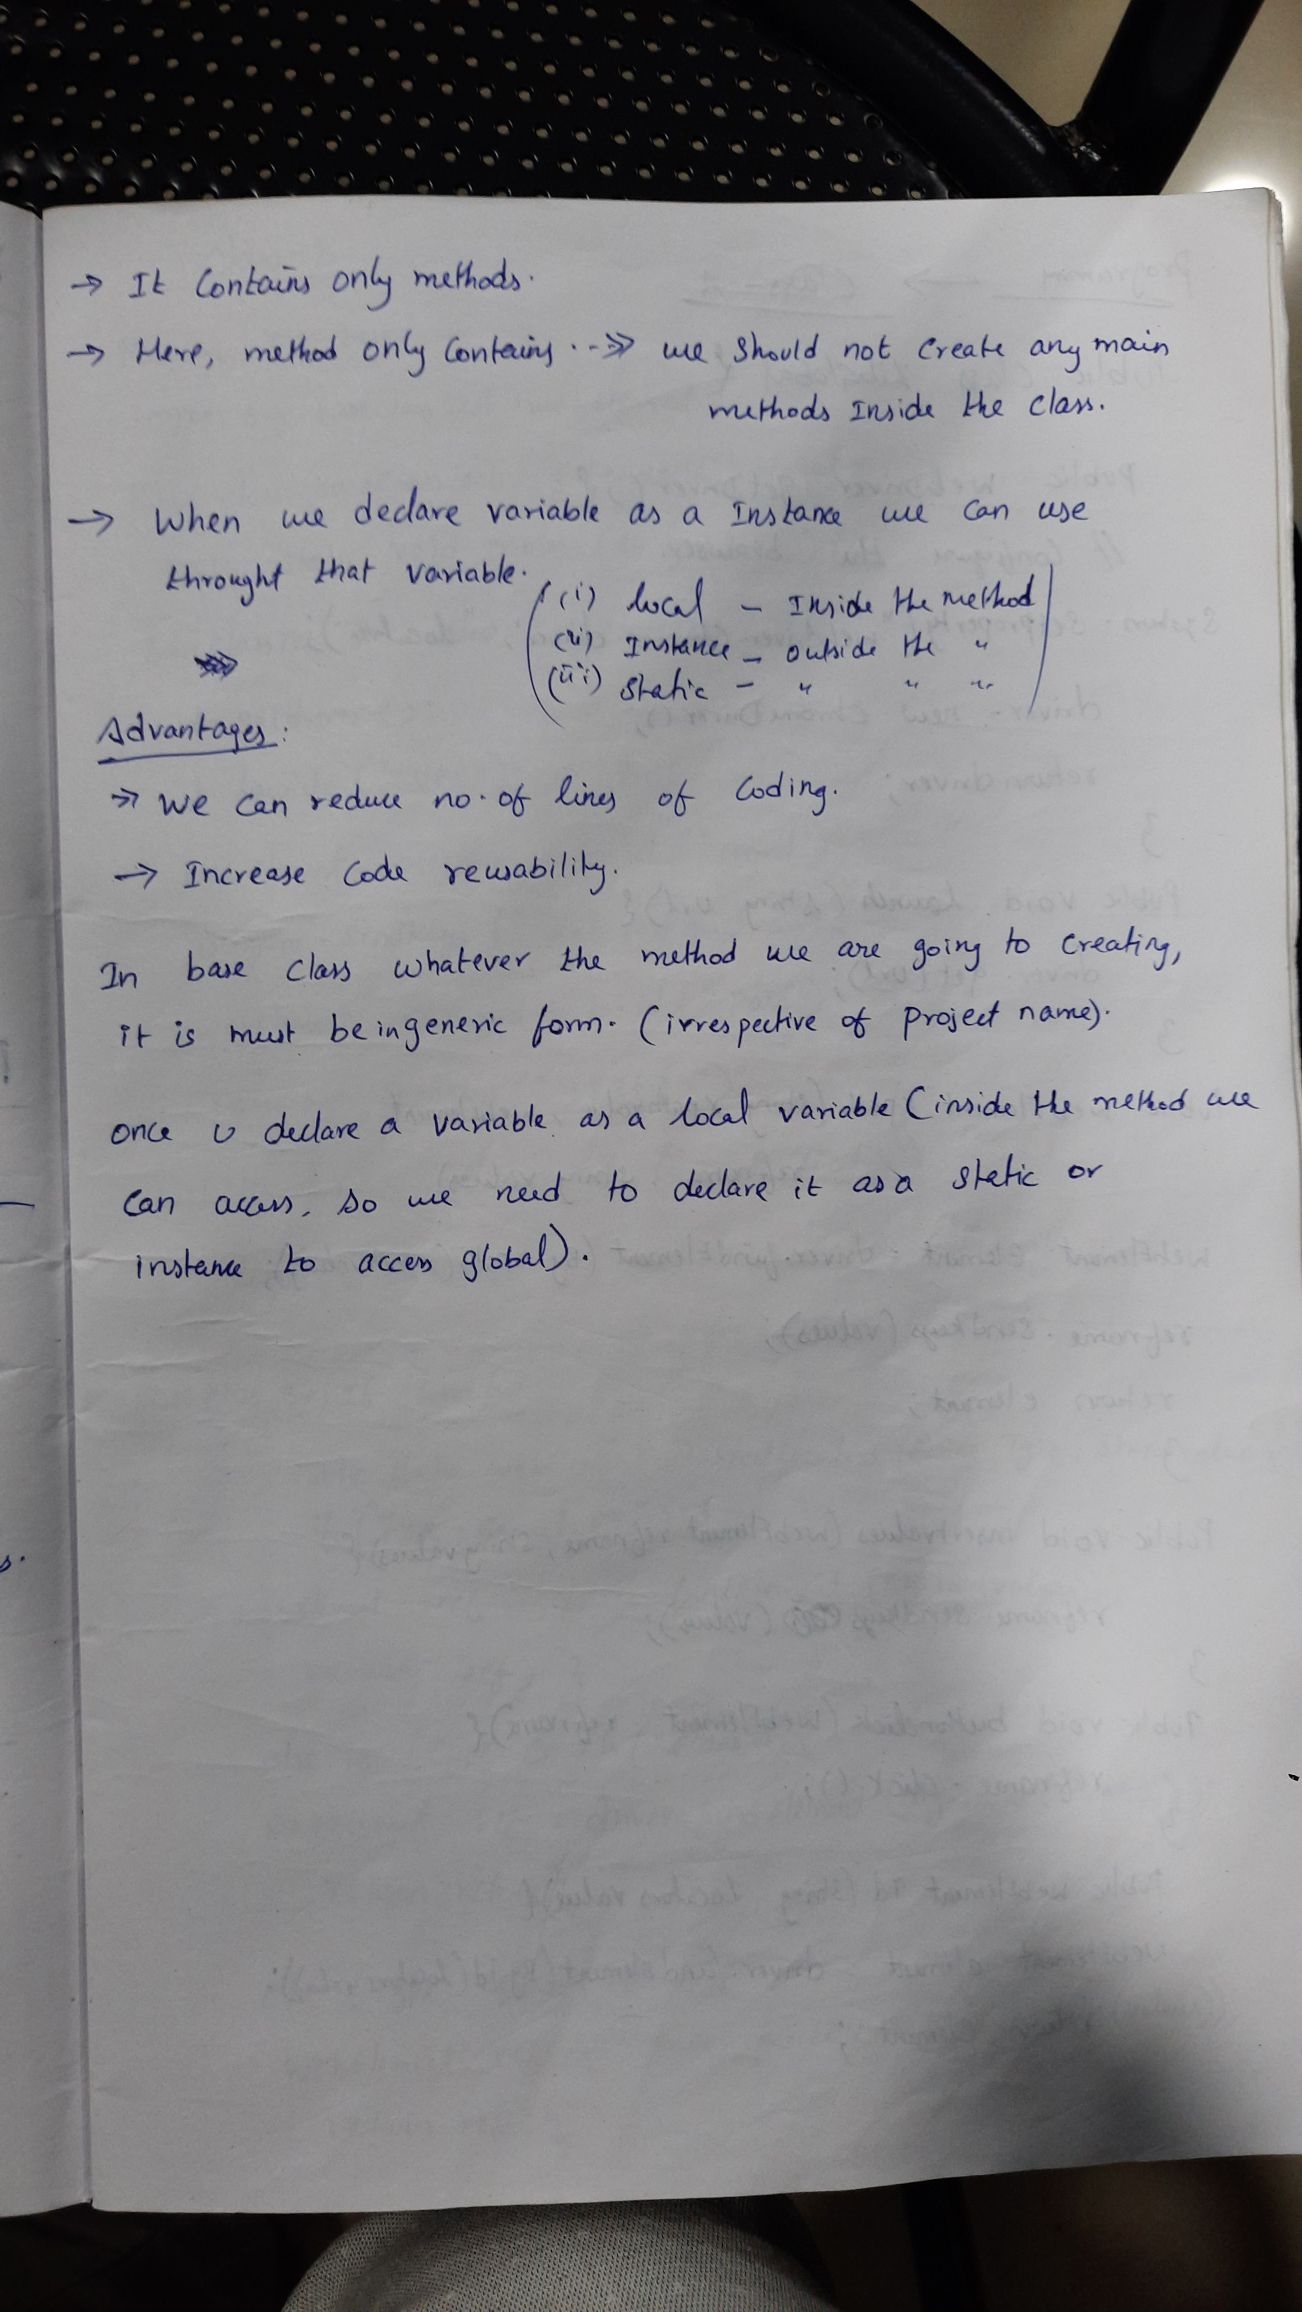 → It Contains only methods.
→ Here, method only Contains. -->> we should not Create any main
methods Inside the class.
→ When we declare variable as a Instance we can use
throught that variable.
(i) local - Inside the method
(ii) Instance - outside the "
(iii) Static - " " "
Advantages:
→ We can reduce no. of lines of Coding.
→ Increase Code reusability.
In base class whatever the method we are going to creating,
it is must be ingeneric form. (irrespective of project name).
once u declare a variable as a local variable (inside the method we
can access, so we need to declare it as a static or
instance to access global).
s.